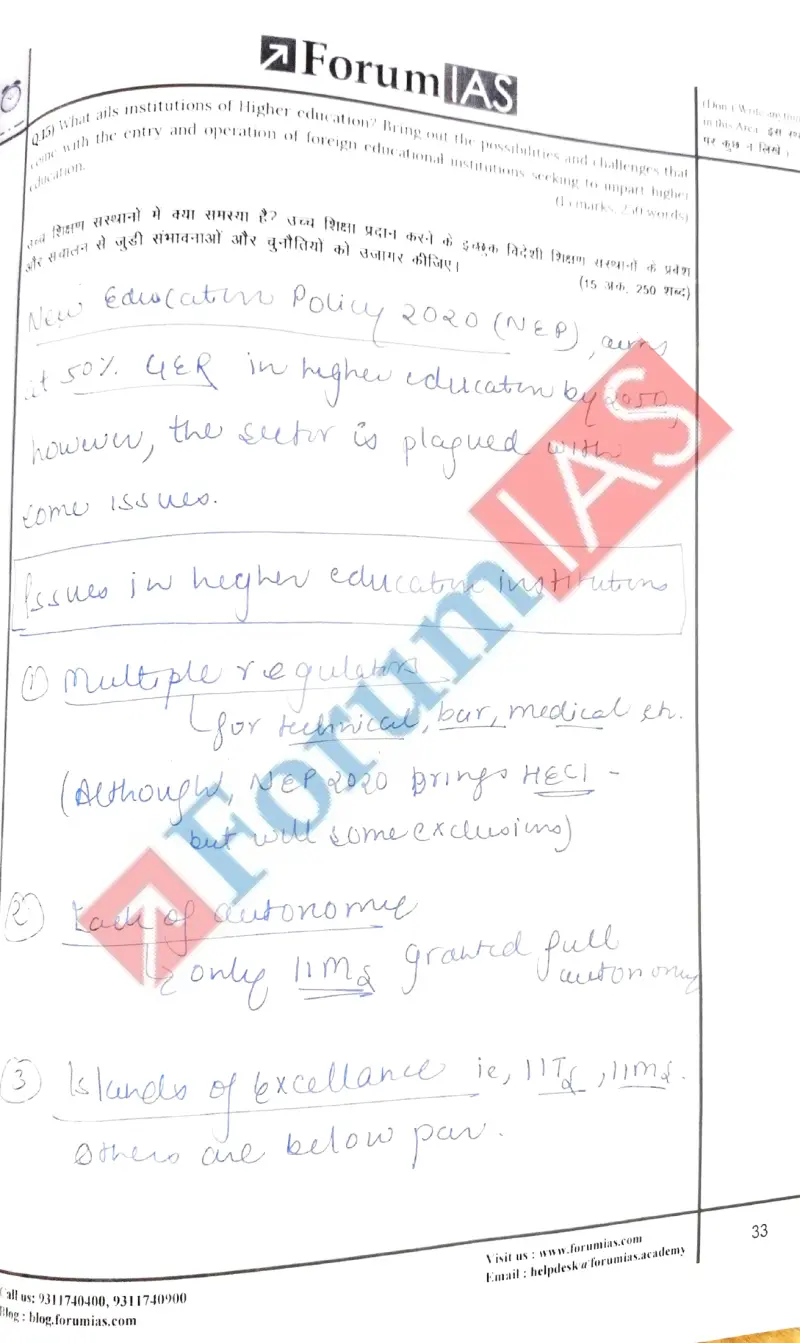 ForumIAS
Q.15) What ails institutions of Higher education? Bring out the possibilities and challenges that
come with the entry and operation of foreign educational institutions seeking to impart higher
education.
(15 marks, 250 words)
(Don't Write anything
in this Area
पर कुछ न लिखें)
उच्च शिक्षण संस्थानों में क्या समस्या है? उच्च शिक्षा प्रदान करने के इच्छुक विदेशी शिक्षण संस्थानों के प्रवेश
और संचालन से जुडी संभावनाओं और चुनौतियों को उजागर कीजिए।
(15 अंक, 250 शब्द)
New Education Policy 2020 (NEP), aims
at 50% GER in higher education by 2050,
however, the sector is plagued with
some issues.
Issues in higher education institutions
① Multiple regulators
for technical, bar, medical etc.
(Although, NEP 2020 brings HECI -
but will some exclusions)
② Lack of autonomy
only IIMs granted full
autonomy
③ Islands of excellance ie, IITs, IIMs.
Others are below par.
ForumIAS
33
Visit us : www.forumias.com
Email : helpdesk@forumias.academy
Call us: 9311740400, 9311740900
Blog : blog.forumias.com